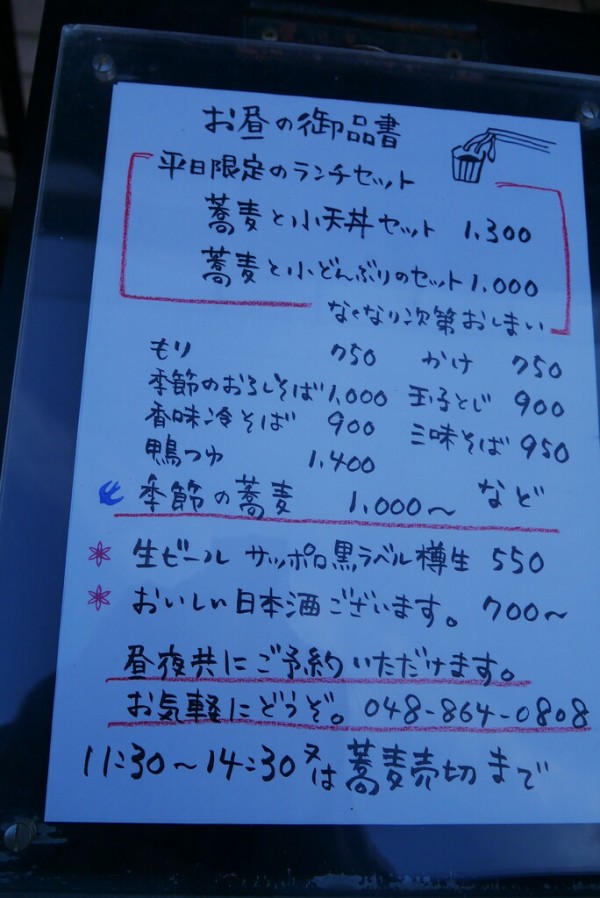 お昼の御品書
平日限定のランチセット
蕎麦と小天丼セット 1,300
蕎麦と小どんぶりのセット 1,000
なくなり次第おしまい
もり 750 かけ 750
季節のおろしそば 1,000 玉子とじ 900
香味冷そば 900 三味そば 950
鴨つゆ 1,400
季節の蕎麦 1,000〜 など
生ビール サッポロ黒ラベル樽生 550
おいしい日本酒ございます。 700〜
昼夜共にご予約いただけます。
お気軽にどうぞ。 048-864-0808
11:30〜14:30 又は蕎麦売切まで